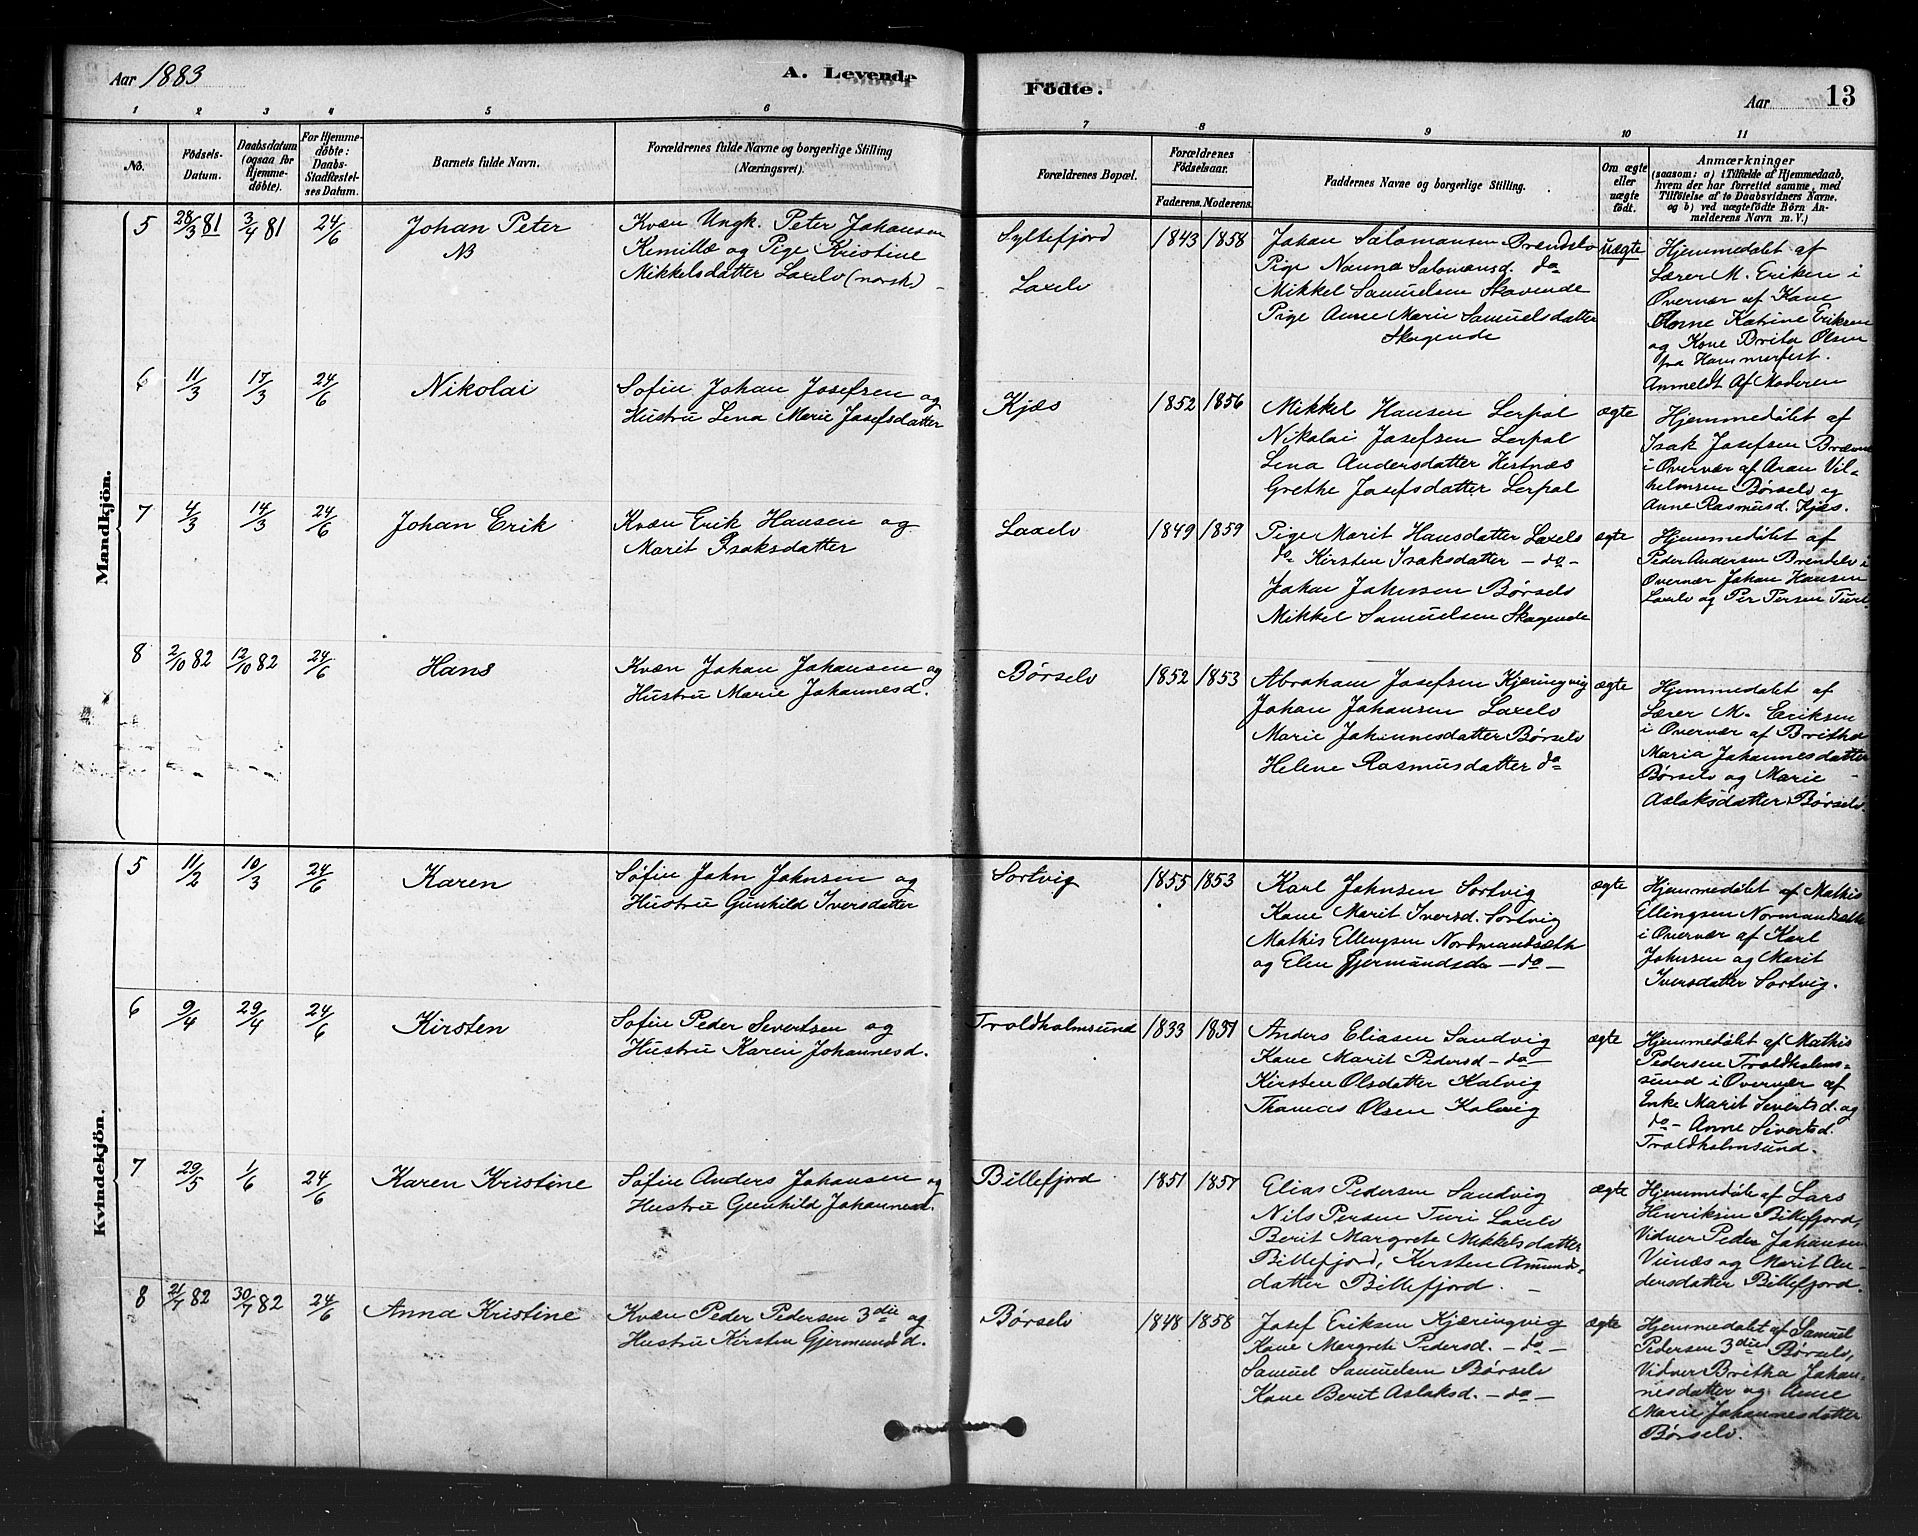 Aar 1883
A. Levende
Födte.
Aar
13
1 2 3 4 5 6 7 8 9 10 11
No.
Födsels-
Datum.
Daabsdatum
(ogsaa for
Hjemme-
döbte).
For Hjemme-
döbte:
Daabs-
Stadfæstel-
ses Datum.
Barnets fulde Navn.
Forældrenes fulde Navne og borgerlige Stilling
(Næringsvei).
Forældrenes Bopæl.
Forældrenes
Födselsaar.
Faderens. Moderens.
Faddernes Navne og borgerlige Stilling.
Om ægte
eller
uægte
födt.
Anmærkninger
(saasom: a) i Tilfælde af Hjemmedaab,
hvem der har forrettet samme, med
Tilföielse af to Daabsvidners Navne.
og b) ved uægtefödte Börn An-
melderens Navn m. V.)
Mandkjön.
5 28/3 81 3/4 81 24/6
Johan Peter
NB
Kvæn Ungk. Peter Johansen
Kemillæ og Pige Kristine
Mikkelsdatter Laxelv (norsk)
Syltefjord
Laxelv
1843 1858
Johan Salomonsen Brændelv
Pige Nanna Salomonsd. do
Mikkel Samuelsen Skavende
Pige Anne Marie Samuelsdatter
Skogende
uægte
Hjemmedøbt af
Lærer M. Eriksen i
Overvær af Kone
Anne Katrine Eriksen
og Kone Brita Olsen
fra Hammerfest.
Anmeldt af Moderen
6 11/3 17/3 24/6
Nikolai
Søfin Johan Josefsen og
Hustru Lena Marie Josefsdatter
Kjæs
1852 1856
Mikkel Hansen Lerpol
Nikolai Josefsen Lerpol
Lena Andersdatter Hestnæs
Grethe Josefsdatter Lerpol
ægte
Hjemmedøbt af
Isak Josefsen
i Overvær af Aron Vil-
helmsen Børselv og
Anne Rasmusd. Kjæs.
7 4/3 14/3 24/6
Johan Erik
Kvæn Erik Hansen og
Marit Isaksdatter
Laxelv
1849 1859
Pige Marit Hansdatter Laxelv
do Kirsten Isaksdatter – do –
Johan Johnsen Børselv
Mikkel Samuelsen Skogende
ægte
Hjemmedøbt af
Peder Andersen Brendelv i
Overvær Johan Hansen
Laxelv og Per Persen Turi
8 2/10 82 12/10 82 24/6
Hans
Kvæn Johan Johansen og
Hustru Marie Johannesd.
Børselv
1852 1853
Abraham Josefsen Kjæringvig
Johan Johansen Laxelv
Marie Johannesdatter Børselv
Helene Rasmusdatter do
ægte
Hjemmedøbt af
Lærer M. Eriksen
i Overvær af Britha
Maria Johannesdatter
Børselv og Marie
Aslaksdatter Børselv.
Kvindekjön.
5 11/2 10/3 24/6
Karen
Søfin John Johnsen og
Hustru Gunhild Iversdatter
Sortvig
1855 1853
Karl Johnsen Sortvig
Kone Marit Iversd. Sortvig
Mathis Ellingsen Nordmandsæth
og Elen Gjermundsd – do –
ægte
Hjemmedøbt af Mathis
Ellingsen Normandsæth
i Overvær af Karl
Johnsen og Marit
Iversdatter Sortvig.
6 9/4 29/4 24/6
Kirsten
Søfin Peder Severtsen og
Hustru Karen Johannesd.
Troldholmsund
1833 1851
Anders Eliasen Sandvig
Kone Marit Pedersd – do –
Kirsten Olsdatter Kalvig
Thomas Olsen Kolvig
ægte
Hjemmedøbt af Mathis
Pedersen Troldholms-
sund i Overvær af
Enke Marit Sivertsd. og
do – Anne Sivertsd.
Troldholmsund.
7 29/5 1/6 24/6
Karen Kristine
Søfin Anders Johansen og
Hustru Gunhild Johannesd.
Billefjord
1851 1857
Elias Pedersen Sandvig
Nils Persen Turi Laxelv
Berit Margrete Mikkelsdatter
Billefjord, Kirsten Amunds-
datter Billefjord.
ægte
Hjemmedøbt af Lars
Henriksen Billefjord,
Vidner Peder Johansen
Veinæs og Marit An-
dersdatter Billefjord.
8 21/7 82 30/7 82 24/6
Anna Kristine
Kvæn Peder Pedersen 3die og
Hustru Kirsten Gjermundsd.
Børselv
1848 1858
Josef Eriksen Kjæringvig
Kone Margrete Pedersd. – do –
Samuel Samuelsen Børselv
Kone Berit Aslaksd. – do –
ægte
Hjemmedøbt af Samuel
Pedersen 3die Børselv,
Vidner Britha Johan-
nesdatter og Anne
Marie Johannesdatter
Børselv.